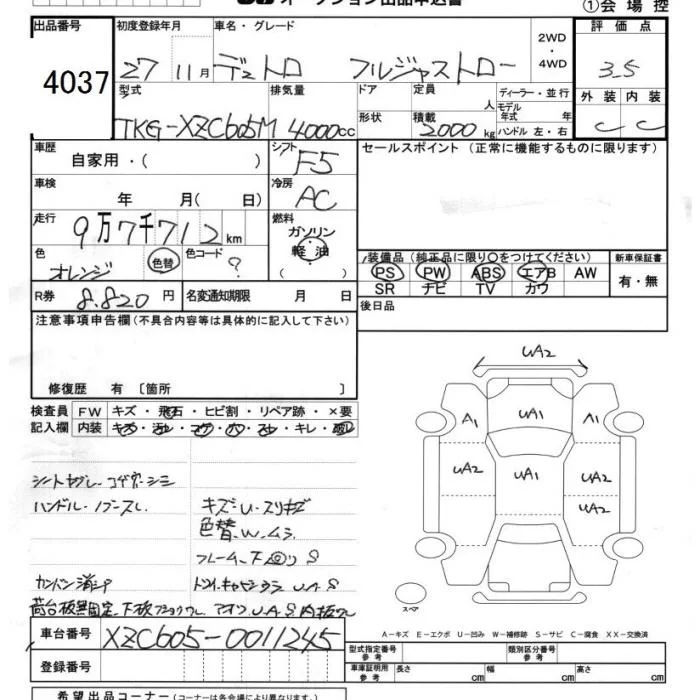 オークション出品申込書 ①会場控
出品番号 初度登録年月 車名・グレード 2WD・4WD 評価点
4037 27 11月 デュトロ フルジャストロー 3.5
型式 排気量 ドア 定員 人 ディーラー・並行 外装 内装
TKG-XZC605M 4000cc 形状 積載 2000kg モデル年式 年 ハンドル 左・右 C C
車歴 シフト セールスポイント (正常に機能するものに限ります)
自家用・( ) F5
車検 冷房
年 月(日) AC
走行 燃料
9万7千712km ガソリン・軽油・( )
色 色替 色コード 装備品 (純正品に限り○をつけてください) 新車保証書
オレンジ ? PS PW ABS エアB AW 有・無
SR ナビ TV カワ
R券 8.820円 名変通知期限 月 日 後日品
注意事項申告欄 (不具合内容等は具体的に記入して下さい)
修復歴 有 [箇所 ]
検査員 FW キズ・飛石・ヒビ割・リペア跡・×要
記入欄 内装 キズ・汚レ・コゲ・穴・スレ・キレ・
UA2
A1 UA1 A1
UA2 UA1 UA2
UA2
シートヤブレ・コゲ穴・シミ
ハンドル・ スレ
キズ・U・スリキズ
色替・W・ムラ
フレーム、下回りS
スペア
A-キズ E-エクボ U-凹ミ W-補修跡 S-サビ C-腐食 XX-交換済
車台番号 XZC605-0011245
登録番号
型式指定番号 参考 類別区分番号 参考
車庫証明用 参考 長さ cm 幅 cm 高さ cm
希望出品コーナー (名称は各会場により異なります。)